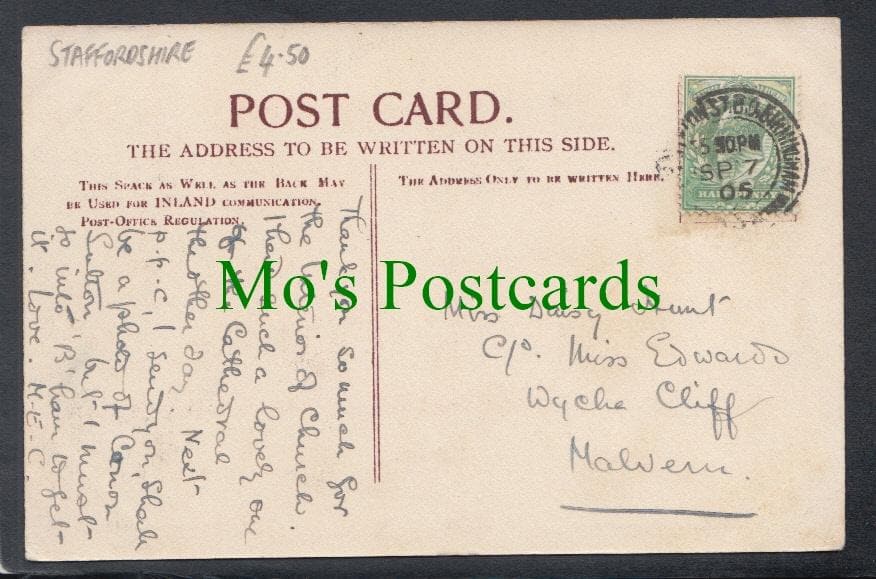 STAFFORDSHIRE £4.50
POST CARD.
THE ADDRESS TO BE WRITTEN ON THIS SIDE.
THIS SPACE AS WELL AS THE BACK MAY
BE USED FOR INLAND COMMUNICATION.
POST-OFFICE REGULATION.
THE ADDRESS ONLY TO BE WRITTEN HERE.
BIRMINGHAM
5 30PM
SP 7
05
Thank you so much for
the interior of Church.
I had such a lovely one
of the Cathedral
the other day. Next
p.p.c. I send you, shall
be a photo of Canon
Sutton but I must
go into B'ham to get
it. Love. M.E.C.
Miss Daisy Hunt
C/o. Miss Edwards
Wyche Cliff
Malvern.
Mo's Postcards